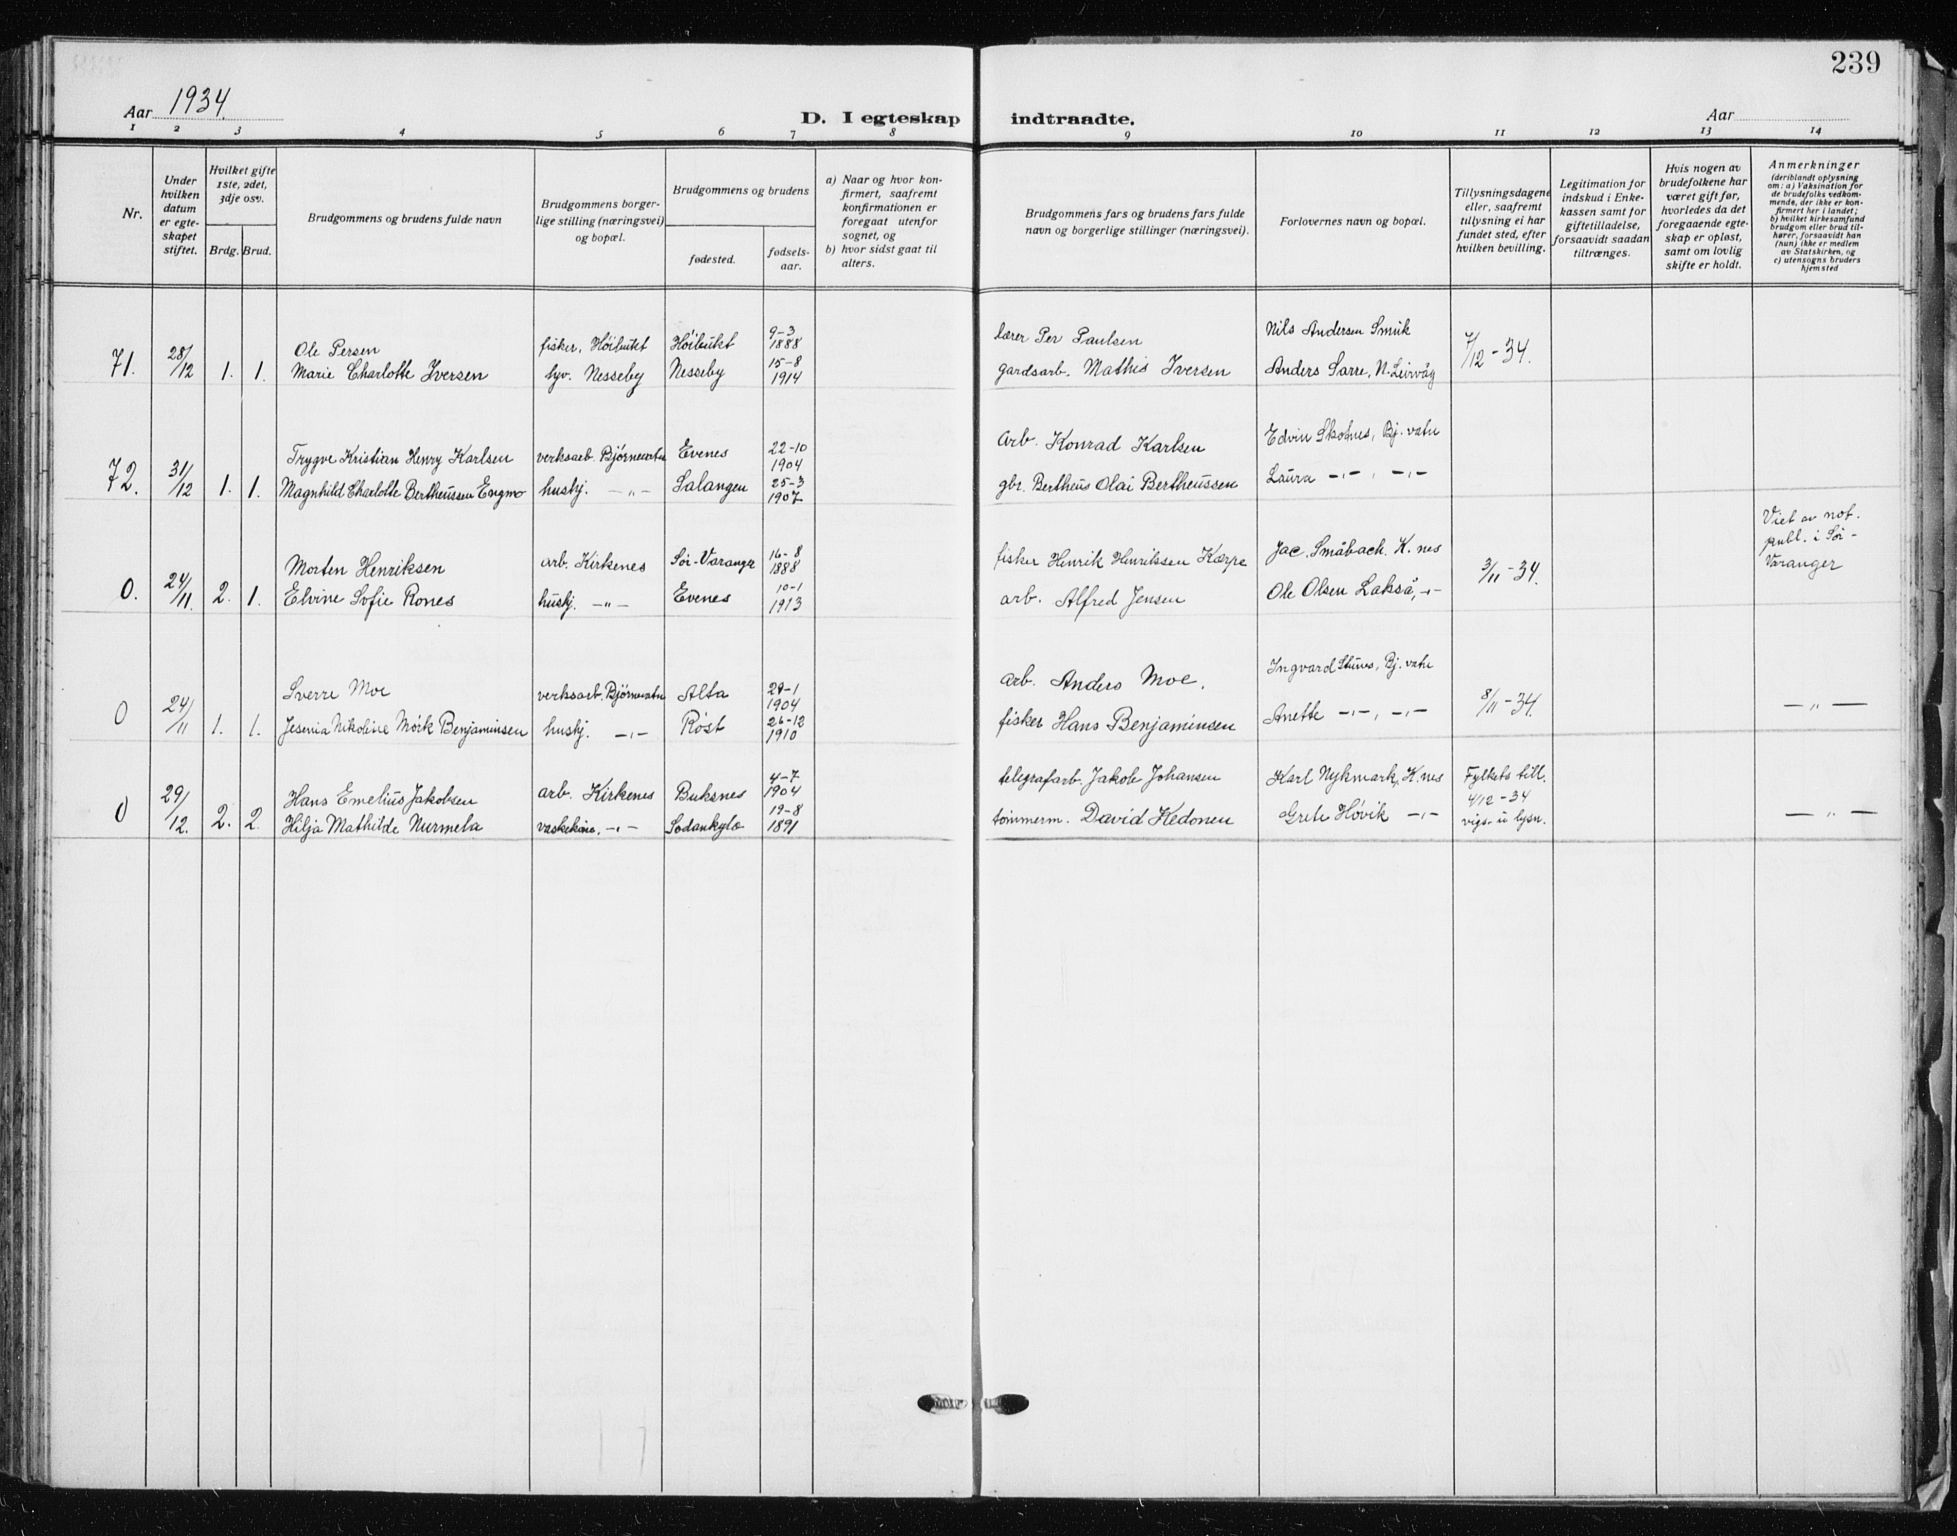 239
Aar 1934.
D. I egteskap indtraadte.
Aar
1 2 3 4 5 6 7 8 9 10 11 12 13 14
Nr.
Under
hvilken
datum
er egte-
skapet
stiftet.
Hvilket gifte
1ste, 2det,
3dje osv.
Brdg. Brud.
Brudgommens og brudens fulde navn
Brudgommens borger-
lige stilling (næringsvei)
og bopæl.
Brudgommens og brudens
fødested.
fødsels-
aar.
a) Naar og hvor kon-
firmert, saafremt
konfirmationen er
foregaat utenfor
sognet, og
b) hvor sidst gaat til
alters.
Brudgommens fars og brudens fars fulde
navn og borgerlige stillinger (næringsvei).
Forlovernes navn og bopæl.
Tillysningsdagene
eller, saafremt
tillysning ei har
fundet sted, efter
hvilken bevilling.
Legitimation for
indskud i Enke-
kassen samt for
giftetilladelse,
forsaavidt saadan
tiltrænges.
Hvis nogen av
brudefolkene har
været gift før,
hvorledes da det
foregaaende egte-
skap er opløst,
samt om lovlig
skifte er holdt.
Anmerkninger
(deriblandt oplysning
om: a) Vaksination for
de brudefolks vedkom-
mende, der ikke er kon-
firmert her i landet;
b) hvilket kirkesamfund
brudgom eller brud til-
hører, forsaavidt han
(hun) ikke er medlem
av Statskirken, og
c) utensogns bruders
hjemsted
Ole Persen fisker, Høibukt Høibukt 9-3 1888 lærer Per Paulsen Nils Andersen Smuk
71. 28/12 1. 1. Marie Charlotte Iversen syv. Nesseby Nesseby 15-8 1914 gardsarb. Mathis Iversen Anders Sarre, N. Leirvåg 7/12-34.
Trygve Kristian Henry Karlsen verksarb. Bjørnevatn Evenes 22-10 1904 arb. Konrad Karlsen Edvin Skotnes, Bj. vatn
72. 31/12 1. 1. Magnhild Charlotte Bertheussen Engmo hushj. -"- Salangen 25-3 1907 gbr. Bertheus Olai Bertheussen Laura -"-, -"-
Morten Henriksen arb. Kirkenes Sør-Varanger 16-8 1888 fisker Henrik Henrikssen Karpe Jac. Småbach, K.nes Viet av not.
publ. i Sør-
Varanger
0. 24/11. 2. 1. Elvine Sofie Rones hushj. -"- Evenes 10-1 1913 arb. Alfred Jensen Ole Olsen Lakså, -"- 3/11-34.
Sverre Moe verksarb. Bjørnevatn Alta 29-1 1904 arb. Anders Moe. Ingvard Stuvs, Bj. vatn
0 24/11 1. 1. Jesenia Nikoline Mörk Benjaminsen hushj. -"- Röst 26-12 1910 fisker Hans Benjaminsen Anette -"-, -"- 8/11-34. -"-
Hans Emelius Jakobsen arb. Kirkenes Buksnes 4-7 1904 telegrafarb. Jakob Johansen Karl Nykmark, K.nes Fylkets till.
4/12-34
0 29/12. 2. 2. Hilja Mathilde Nurmela vaskekone, -"- Sodankylæ 19-8 1891 tømmerm. David Kedonen Grete Høvik -"- vigs. u lysn. -"-